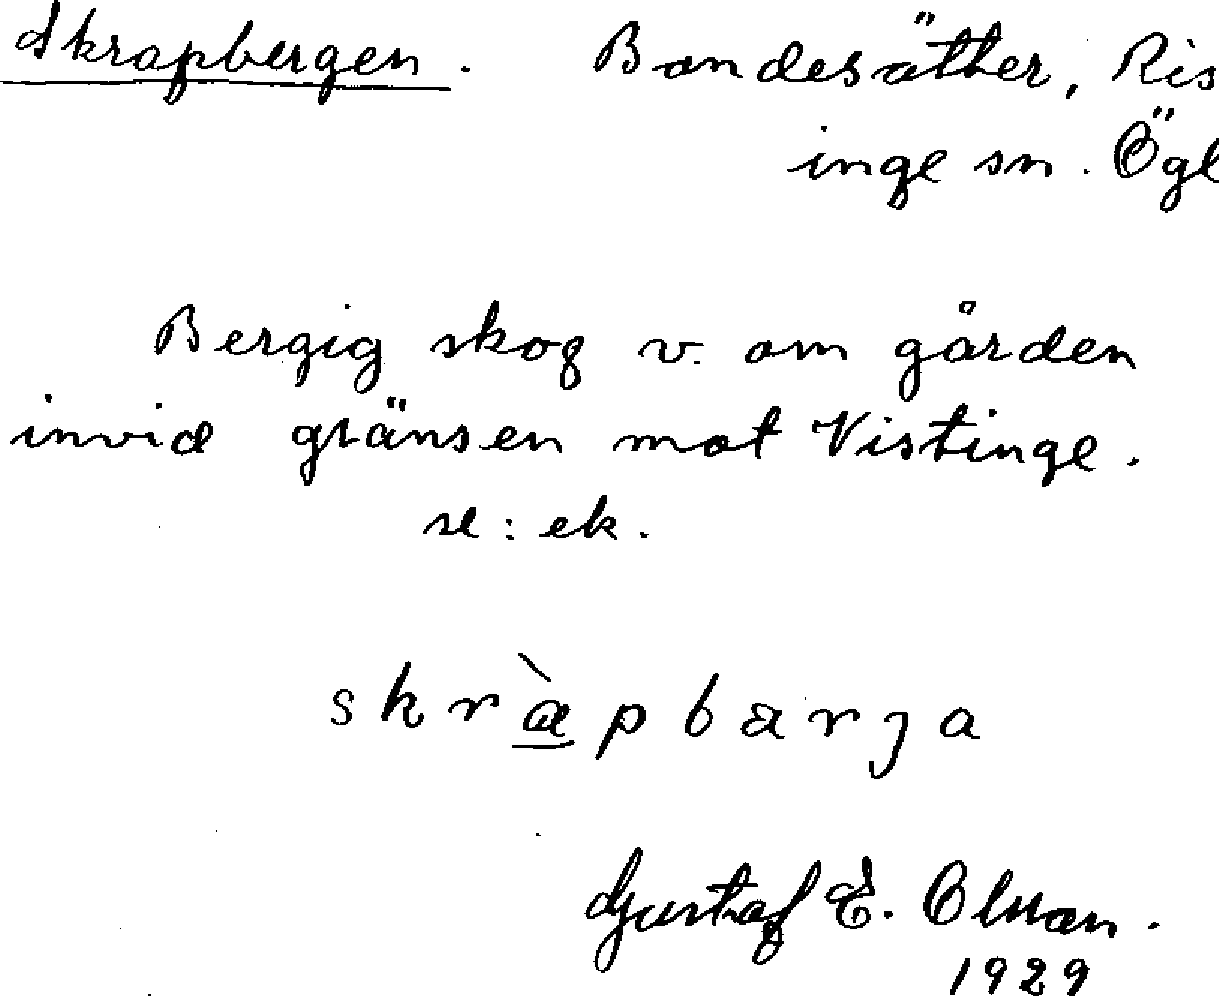 Skrapbergen. Bondesätter, Ris
inge sn. Ögl
Bergig skog v. om gården
invid gränsen mot Vistinge.
se: ek.
skrà̱pbærja
Gustaf E. Olsson.
1929